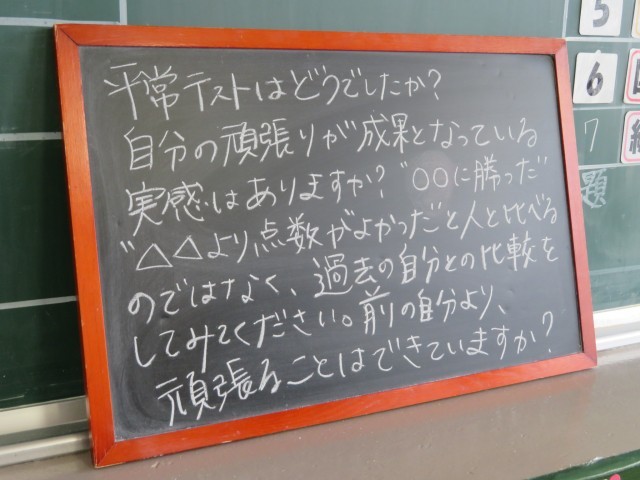 平常テストはどうでしたか？
自分の頑張りが成果となっている
実感はありますか？"○○に勝った"
"△△より点数がよかった"と人と比べる
のではなく、過去の自分との比較を
してみてください。前の自分より、
頑張ることはできていますか？
5
6
7
題